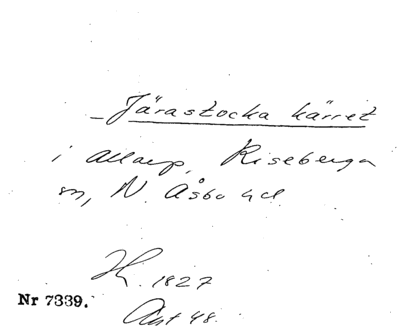 Järastocka kärret
i Allarp, Riseberga
sn, N. Åsbo hd
H. 1827
Nr 7339.
Akt 48.